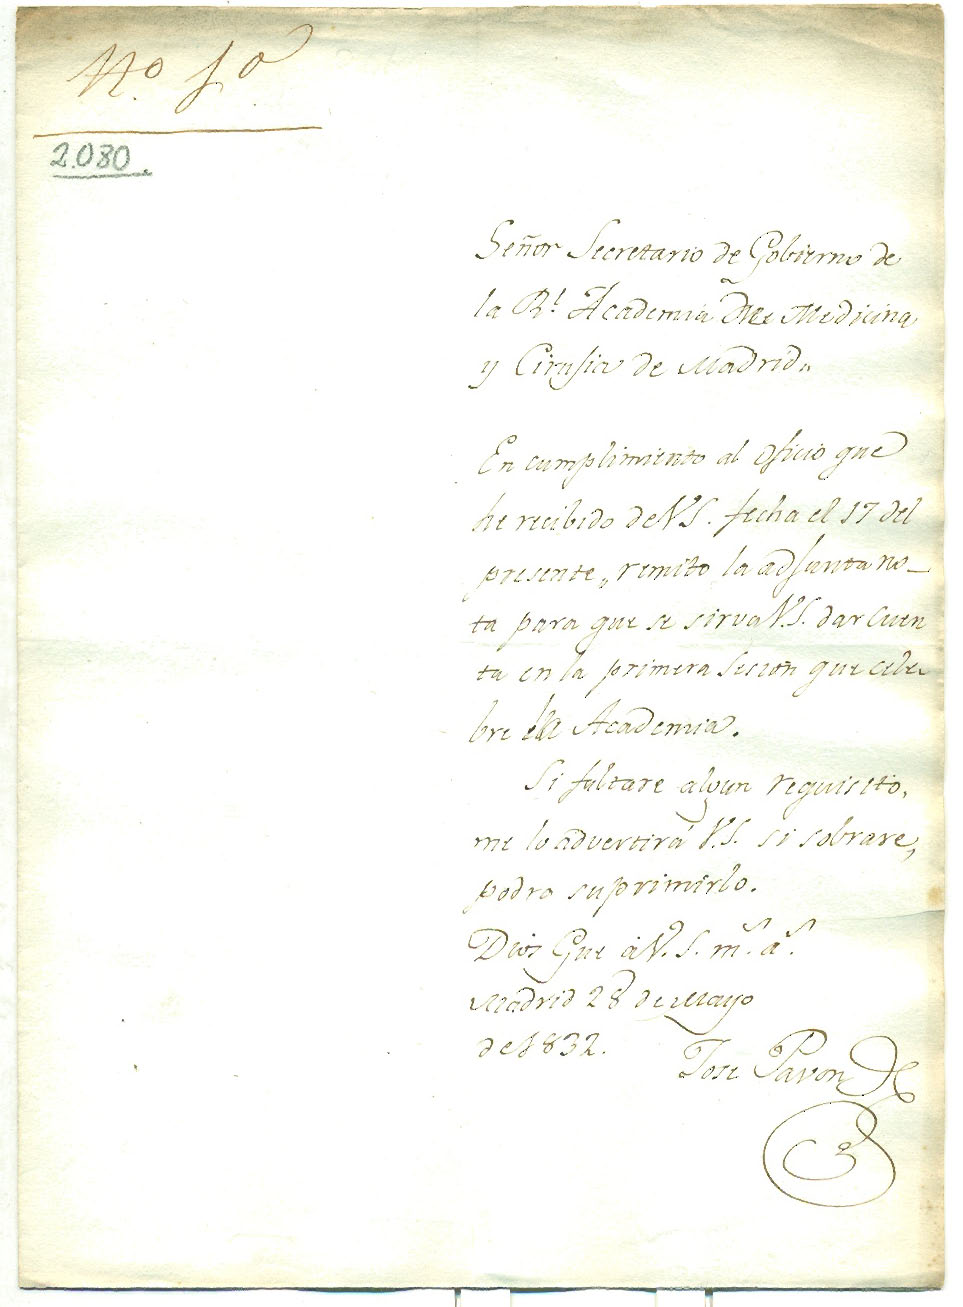 Nº 1º
2.080
Señor Secretario de Gobierno de
la Rl. Academia de Medicina
y Cirujia de Madrid,,
En cumplimiento al oficio que
he recibido de VS. fecha el 17 del
presente,, remito la adjunta no_
ta para que se sirva VS. dar cuen
ta en la primera sesion que cele-
bre la Academia.
Si faltare algun requisito,
me lo advertirá V.S. si sobrare,
podra suprimirlo.
Dios Gue á V.S. ms. as.
Madrid 28 de Mayo
de 1832.
Jose Pavon